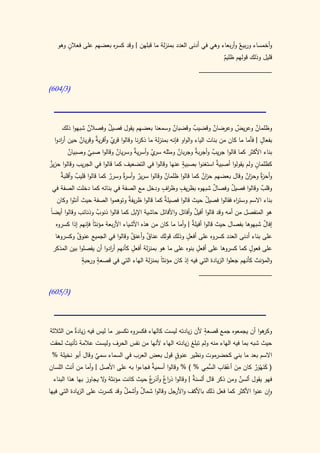 وأخمساء وربيعٌ وأربعاء وهي في أدنى العدد بمنزلة ما قبلهن | وقد كسره بعضهم على فعلانٍ وهو
قليل وذلك قولهم ظليمٌ
(604/3)
وظلمانٌ وعريضٌ وعرضانٌ وقضيبٌ وقضبانٌ وسمعنا بعضهم يقول فصيلٌ وفصلانٌ شبهوا ذلك
بفعالٍ | فأما ما كان من بنات الياء والواو فإنه بمنزلة ما ذكرنا وقالوا قريٌّ وأقريةٌ وقريانٌ حين أرادوا
بناء الأكثر كما قالوا جريبٌ وأجربةٌ وجربانٌ ومثله سريٌّ وأسريةٌ وسريانٌ وقالوا صبيٌّ وصبيانٌ
كظلمانٍ ولم يقولوا أصبيةٌ استغنوا بصبيةٍ عنها وقالوا في التضعيف كما قالوا في الجريب وقالوا حزيزٌ
وأحزةٌ وحزانٌ وقال بعضهم حزانٌ كما قالوا ظلمانٌ وقالوا سريرٌ وأسرةٌ وسررٌ كما قالوا قليبٌ وأقلبةٌ
وقلبٌ وقالوا فصيلٌ وفصالٌ شبهوه بظريف وظراف ودخل مع الصفة في بنائه كما دخلت الصفة في
بناء الاسم وستراه فقالوا فصيلٌ حيث قالوا فصيلةٌ كما قالوا ظريفةٌ وتوهموا الصفة حيث أنثوا وكان
هو المنفصل من أمه وقد قالوا أفيلٌ وأفائل والأفائل حاشية الإبل كما قالوا ذنوبٌ وذنائب وقالوا أيضاً
إفالٌ شبهوها بفصال حيث قالوا أفيلةٌ | وأما ما كان من هذه الأشياء الأربعة مؤنثاً فإنهم إذا كسروه
على بناء أدنى العدد كسروه على أفعلٍ وذلك قولك عناقٌ وأعنقٌ وقالوا في الجميع عنوقٌ وكسروها
على فعولٍ كما كسروها على أفعلٍ بنوه على ما هو بمنزلة أفعلٍ كأنهم أرادوا أن يفصلوا بين المذكر
والمؤنث كأنهم جعلوا الزيادة التي فيه إذ كان مؤنثاً بمنزلة الهاء التي في قصعةٍ ورحبةٍ
(605/3)
وكرهوا أن يجمعوه جمع قصعةٍ لأن زيادته ليست كالهاء فكسروه تكسير ما ليس فيه زيادةٌ من الثلاثة
حيث شبه بما فيه الهاء منه ولم تبلغ زيادته الهاء لأنها من نفس الحرف وليست علامة تأنيث لحقت
الاسم بعد ما بني كحضرموت ونظير عنوقٍ قول بعض العرب في السماء سميٌّ وقال أبو نخيلة %
( كَنَهْوَرٌ كان مِنْ أعْقَابِ السُّمِي % ( % وقالوا أسميةٌ فجاءوا به على الأصل | وأما من أنث اللسان
فهو يقول ألسنٌ ومن ذكر قال ألسنةٌ | وقالوا ذراعٌ وأذرعٌ حيث كانت مؤنثة ولا يجاوز بها هذا البناء
وإن عنوا الأكثر كما فعل ذلك بالأكف والأرجل وقالوا شمالٌ وأشملٌ وقد كسرت على الزيادة التي فيها